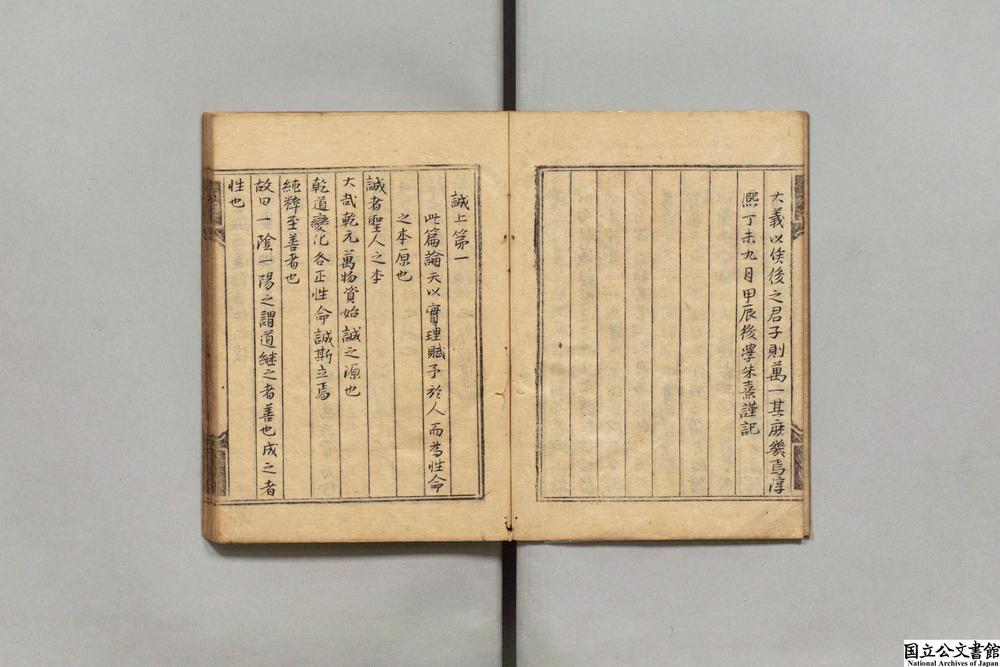 大義以俟後之君子則萬一其庶幾焉淳
熙丁未九月甲辰後學朱熹謹記
誠上第一
此篇論天以實理賦予於人而為性命
之本原也
誠者聖人之本
大哉乾元萬物資始誠之源也
乾道變化各正性命誠斯立焉
純粹至善者也
故曰一陰一陽之謂道継之者善也成之者
性也
国立公文書館
National Archives of Japan